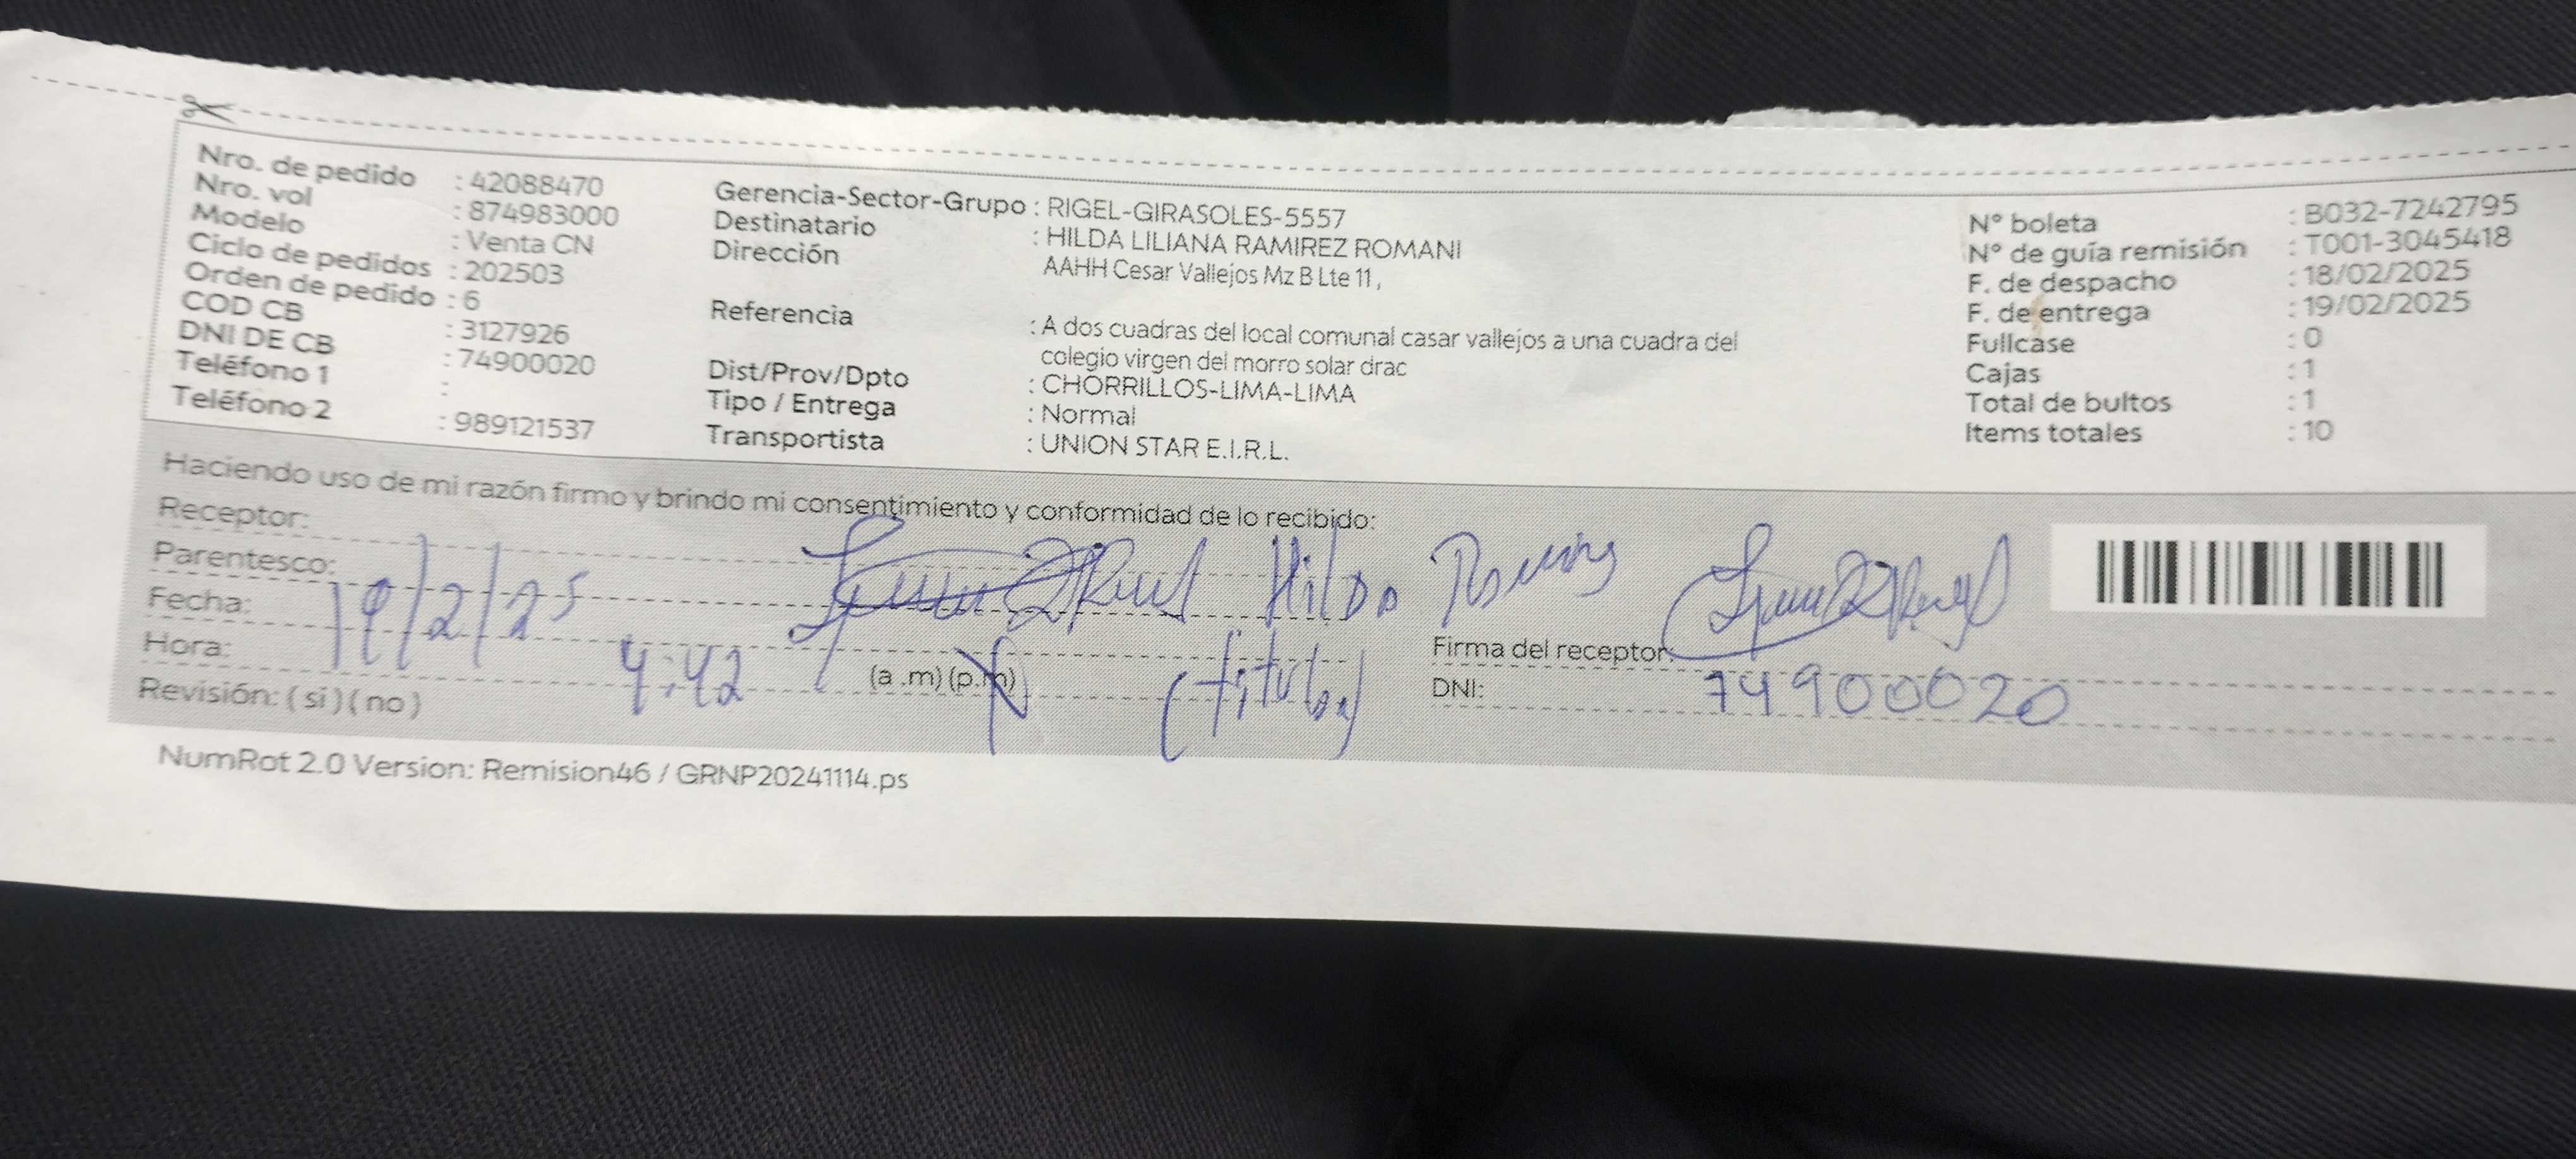 Nro. de pedido : 42088470
Nro. vol : 874983000
Modelo : Venta CN
Ciclo de pedidos : 202503
Orden de pedido : 6
COD CB : 3127926
DNI DE CB : 74900020
Teléfono 1 :
Teléfono 2 : 989121537
Gerencia-Sector-Grupo : RIGEL-GIRASOLES-5557
Destinatario : HILDA LILIANA RAMIREZ ROMANI
Dirección AAHH Cesar Vallejos Mz B Lte 11 ,
Referencia : A dos cuadras del local comunal casar vallejos a una cuadra del
colegio virgen del morro solar drac
Dist/Prov/Dpto : CHORRILLOS-LIMA-LIMA
Tipo / Entrega : Normal
Transportista : UNION STAR E.I.R.L.
N° boleta : B032-7242795
N° de guía remisión : T001-3045418
F. de despacho : 18/02/2025
F. de entrega : 19/02/2025
Fullcase : 0
Cajas : 1
Total de bultos : 1
Items totales : 10
Haciendo uso de mi razón firmo y brindo mi consentimiento y conformidad de lo recibido:
Receptor: Hilda
Parentesco: (titular)
Fecha: 19/2/25
Hora: 4:42 (a .m) (p.m)
Revisión: ( si ) ( no )
Firma del receptor:
DNI: 74900020
NumRot 2.0 Version: Remision46 / GRNP20241114.ps